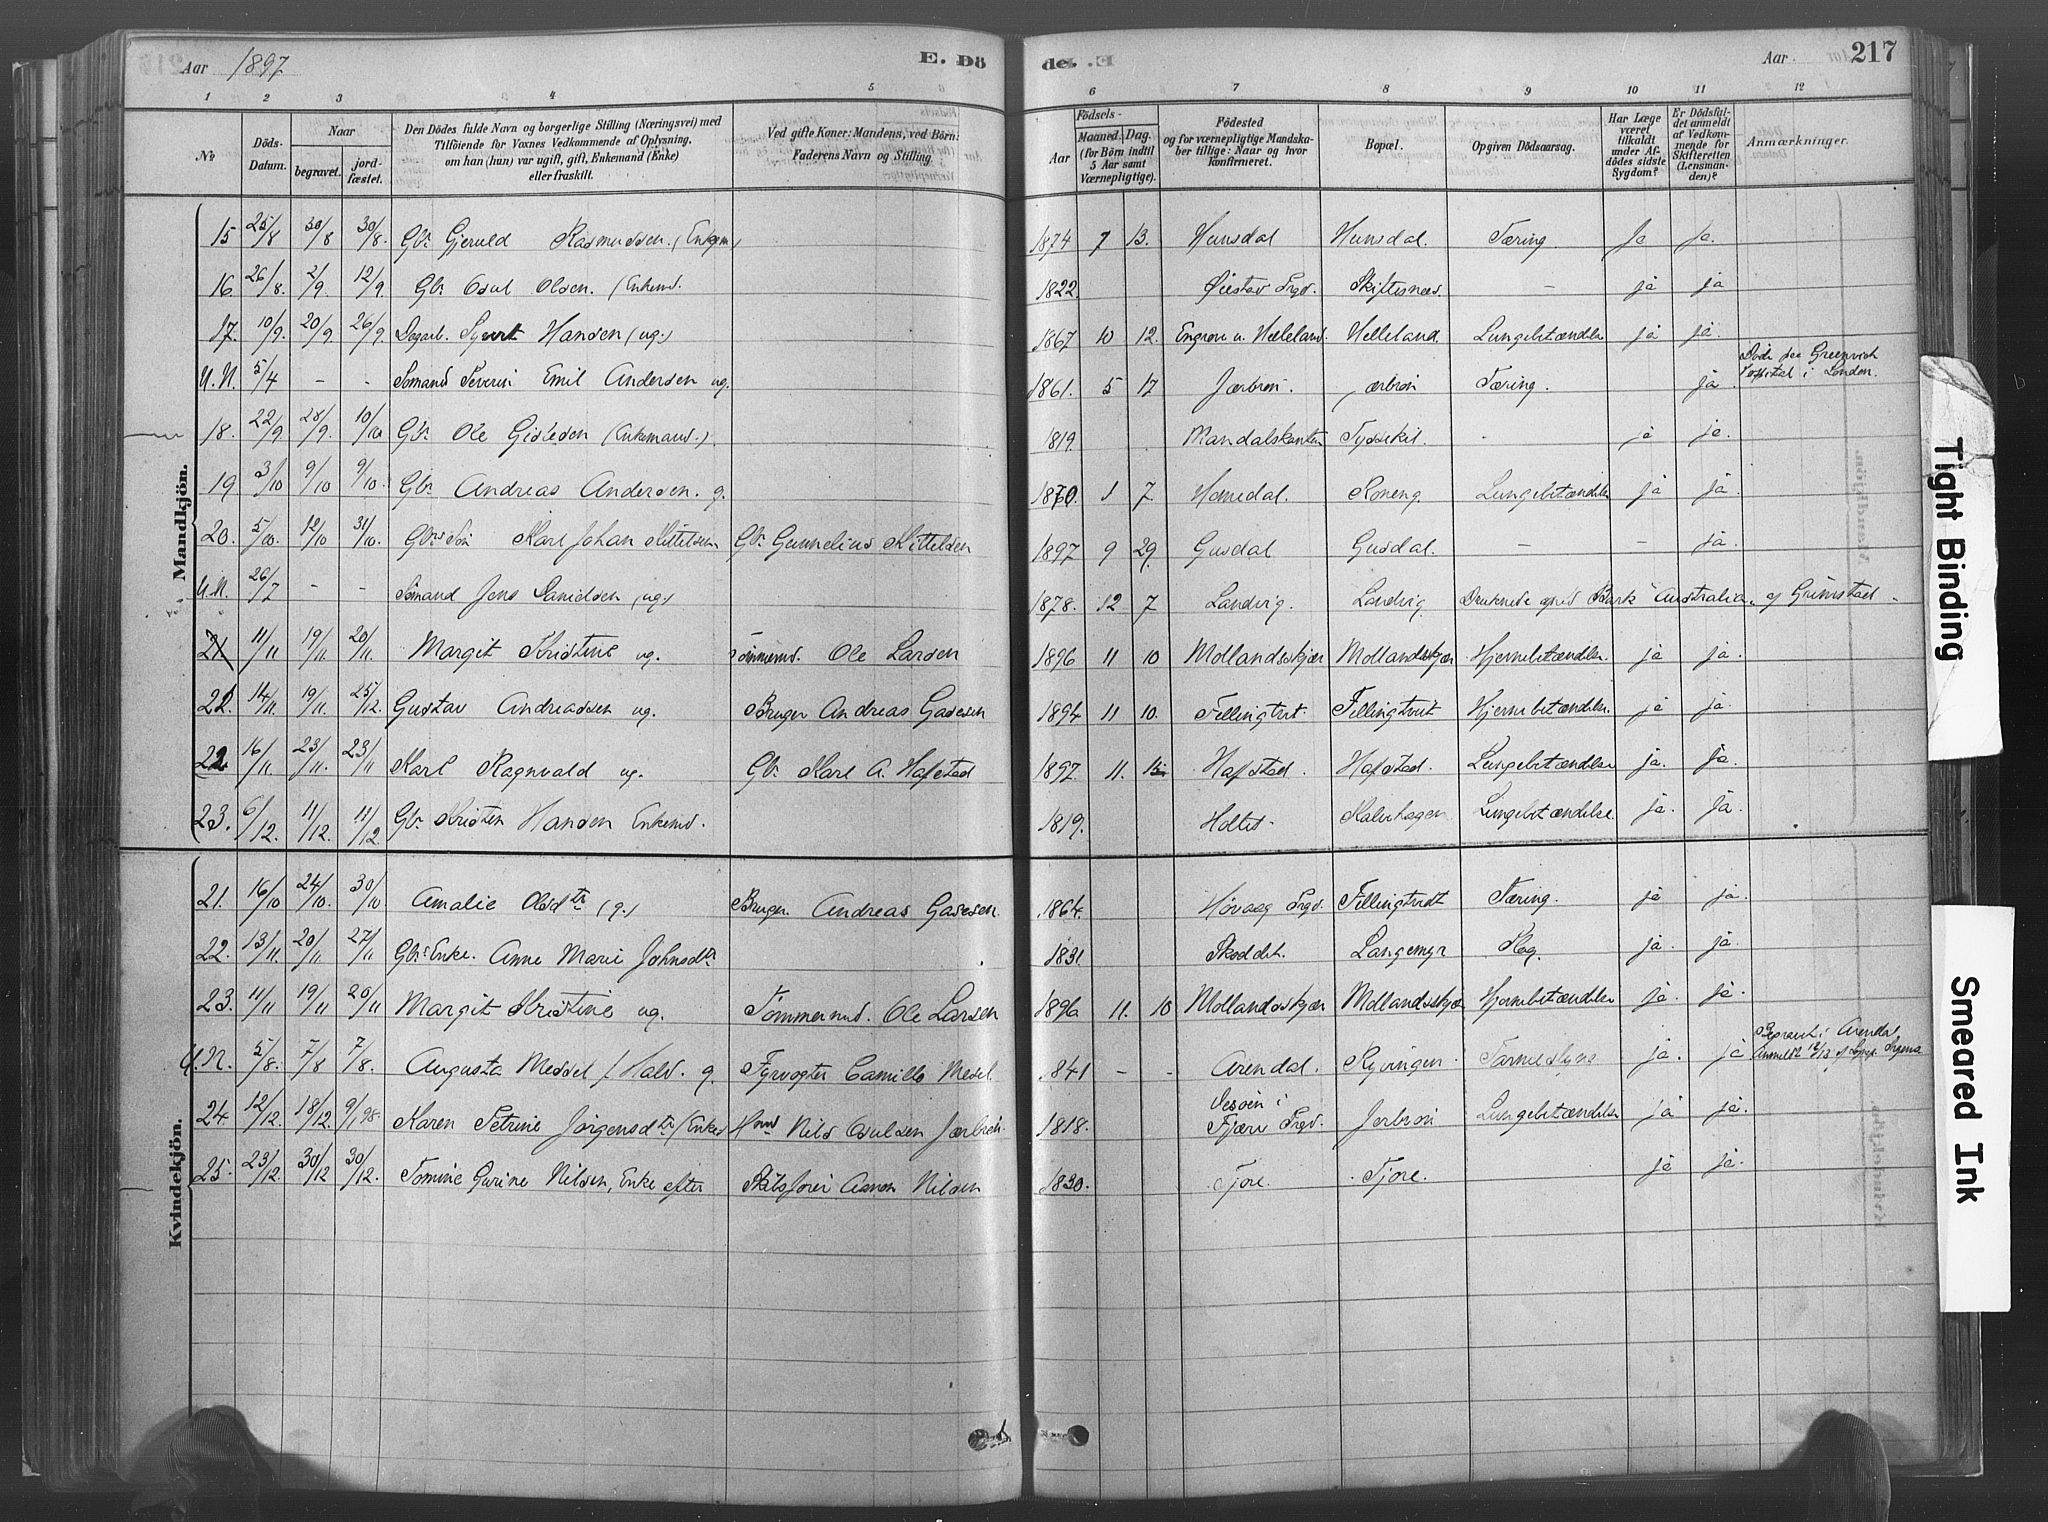 Aar 1897
E. Dö
de.
Aar
217
1 2 3 4 5 6
6 7 8 9 10 11 12
No
Döds-Datum.
Naar
begravet.
jord-fæstet.
Den Dödes fulde Navn og borgerlige Stilling (Næringsvei) med
Tilföiende for Voxnes Vedkommende af Oplysning,
om han (hun) var ugift, gift, Enkemand (Enke)
eller fraskilt.
Ved gifte Koner: Mandens, ved Börn:
Faderens Navn og Stilling.
Födsels-
Aar
Maaned. Dag.
(for Börn indtil
5 Aar samt
Værnepligtige).
Födested
og for værnepligtige Mandska-
ber tillige: Naar og hvor
konfirmeret.
Bopæl.
Opgiven Dödsaarsag.
Har Læge
været
tilkaldt
under Af-
dödes sidste
Sygdom?
Er Dödsfal-
det anmeldt
af Vedkom-
mende for
Skifteretten
(Lensman-
den)?
Anmærkninger.
Mandkjön.
15 25/8 30/8 30/8. Gbr Gjeruld Rasmussen. (Enkem) 1874 7 13. Hunsdal Hunsdal. Tæring. Ja Ja.
16. 26/8. 2/9. 12/9. Gbr Osul Olsen. (Enkemd. 1822. Øiestav Srgd. Skiftesnæs. - ja ja
17. 10/9. 20/9 26/9 Dagarb. Syvert Hansen (ug.) 1867 10 12. Engrov u. Helleland. Helleland. Lungebetændelse ja ja.
U.N. 5/4 - - Sømand Severin Emil Andersen ug. 1861. 5 17 Jærbrøn. Jærbrøn Tæring. ja Døde paa Greenwich
Hospital i London.
18. 22/9. 28/9. 10/10 Gbr Ole Gislesen (Enkemand.) 1819. Mandalskanten - ja ja.
19 3/10 9/10 9/10. Gbr Andreas Andersen. g. 1870. 1 7. Homedal. Roneng Lungebetændelse ja ja.
20. 5/10. 12/10 31/10. Gbrs Søn Karl Johan Kittelsen Gbr Gunnelius Kittelsen 1897 9 29. Gusdal Gusdal. - - ja.
U.N. 26/7 - - Sømand Jens Danielsen (ug.) 1878. 12 7 Landvig. Landvig Druknede med Bark "Australia" af Grimstad.
21. 11/11 19/11. 20/11. Margit Kristine ug. Tømmermd. Ole Larsen 1896 11 10 Mollandsskjær Mollandsskjær Hjernebetændelse. ja ja.
21. 14/11. 19/11. 25/12. Gustav Andreassen ug. Bruger Andreas Gasesen 1894 11 10. Fillingtvet. Fillingtveit Hjernebetændelse. ja ja.
22 16/11 23/11. 23/11 Karl Ragnvald ug. Gbr Karl A. Hafstad 1897 11. Hafstad. Hafstad. Lungebetændelse ja. ja.
23. 6/12. 11/12. 11/12. Gbr Kristen Hansen Enkemd. 1819. Holtet. Lungebetændelse. ja. ja.
Kvindekjön.
21. 16/10 24/10. 30/10 Amalie Olsdtr (g.) Bruger. Andreas Gasesen 1864. Høvaag Srgd. Fillingtvedt Tæring. ja ja.
22. 13/11. 20/11 27/11 Gbrs Enke. Anne Marie Johnsdtr 1831. Langemyr ja. ja.
23. 11/11 19/11 20/11 Margit Kristine ug. Tømmermd. Ole Larsen 1896 11. 10 Mollandsskjær Mollandsskjær Hjernebetændelse ja. ja.
U.N. 5/8. 7/8 7/8. Augusta Messel f. Hald. g. Fyrvogter Camillo Messel. 1841 - - Arendal. Ryvingen. ja. ja Begravet i Arendal
Anmeldt
24. 12/12. 18/12. 9/1 98. Karen Petrine Jørgensdtr (Enke) Hmd Nils Osulsen Jærbrøn. 1818. Fjære Srgd. Jerbrøn Lungebetændelse ja ja.
25. 23/12. 30/12 30/12. Tomine Gurine Nilsen, Enke efter Amon Nilsen 1830. Fjore. Fjore. ja ja.
Tight Binding
Smeared Ink